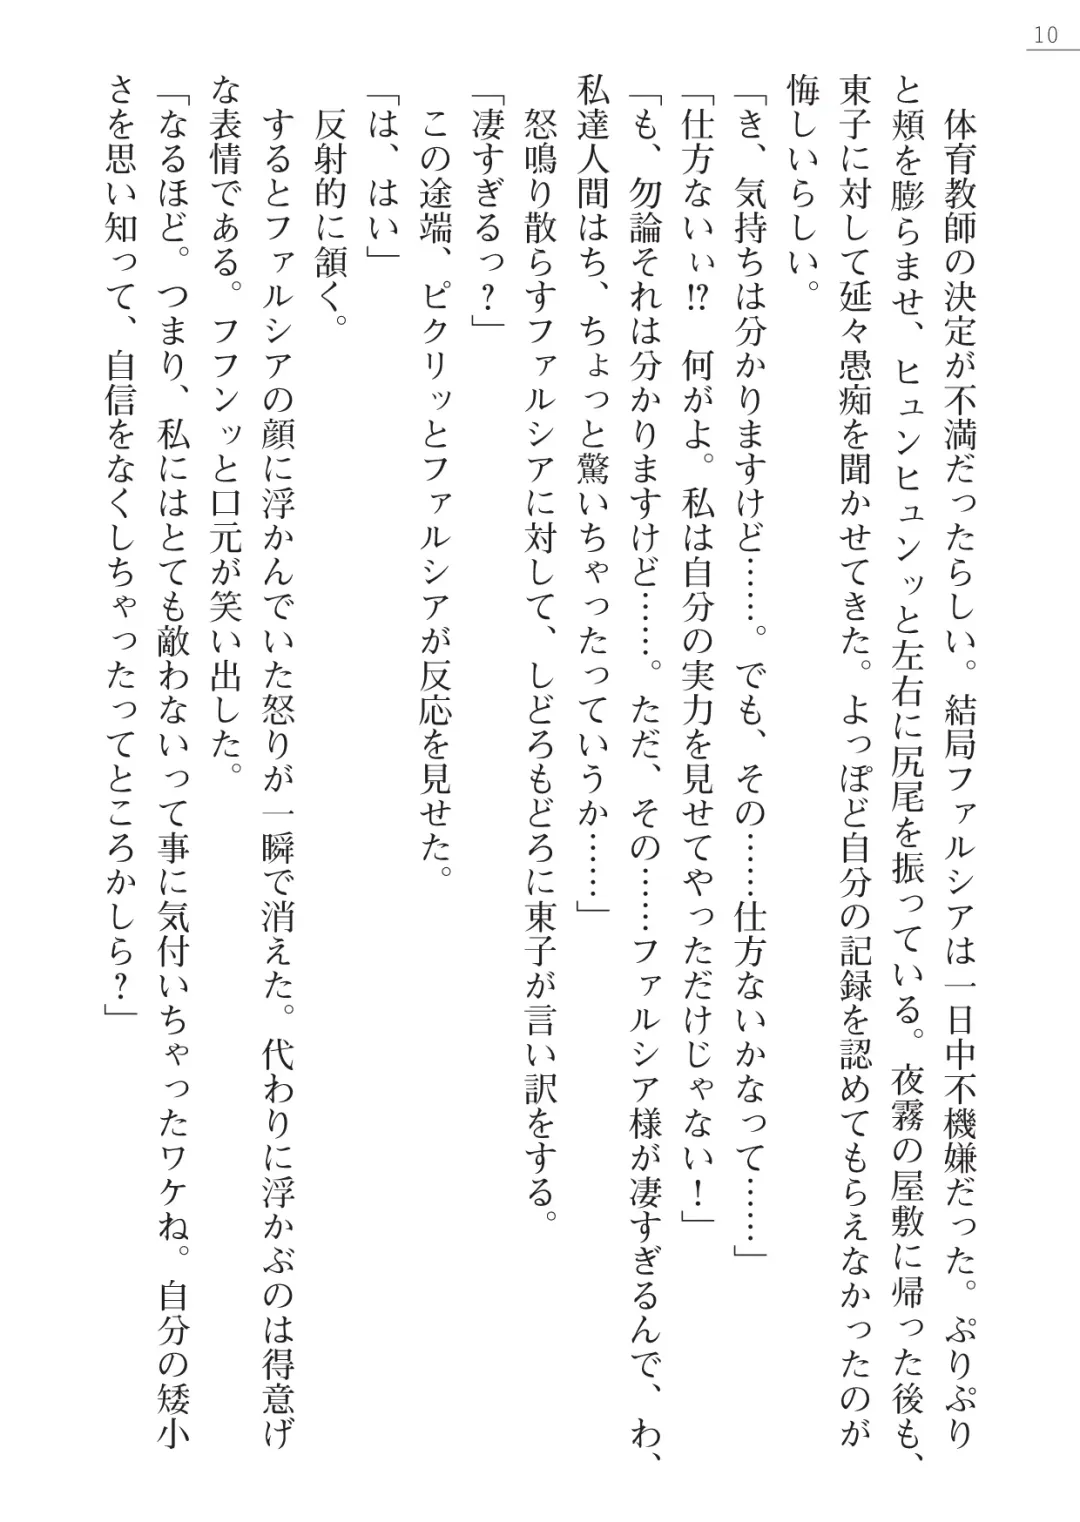 10
体育教師の決定が不満だったらしい。結局ファルシアは一日中不機嫌だった。ぷりぷり
と頬を膨らませ、ヒュンヒュンッと左右に尻尾を振っている。夜霧の屋敷に帰った後も、
東子に対して延々愚痴を聞かせてきた。よっぽど自分の記録を認めてもらえなかったのが
悔しいらしい。
「き、気持ちは分かりますけど……。でも、その……仕方ないかなって……」
「仕方ないぃ!?　何がよ。私は自分の実力を見せてやっただけじゃない！」
「も、勿論それは分かりますけど……。ただ、その……ファルシア様が凄すぎるんで、わ、
私達人間はち、ちょっと驚いちゃったっていうか……」
怒鳴り散らすファルシアに対して、しどろもどろに東子が言い訳をする。
「凄すぎるっ？」
この途端、ピクリッとファルシアが反応を見せた。
「は、はい」
反射的に頷く。
するとファルシアの顔に浮かんでいた怒りが一瞬で消えた。代わりに浮かぶのは得意げ
な表情である。フフンッと口元が笑い出した。
「なるほど。つまり、私にはとても敵わないって事に気付いちゃったワケね。自分の矮小
さを思い知って、自信をなくしちゃったってところかしら？」